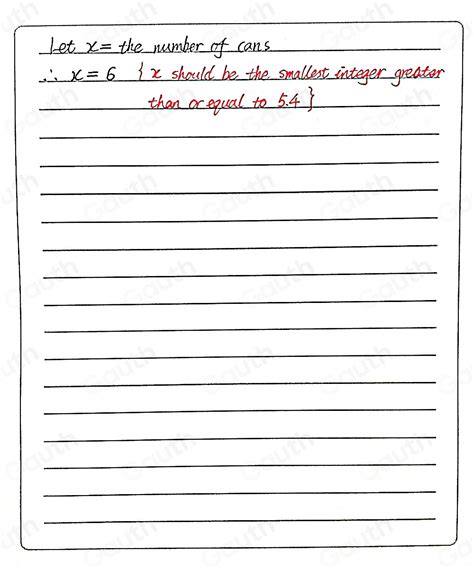 Let x = the number of cans
∴ x = 6 { x should be the smallest integer greater
than or equal to 5.4 }